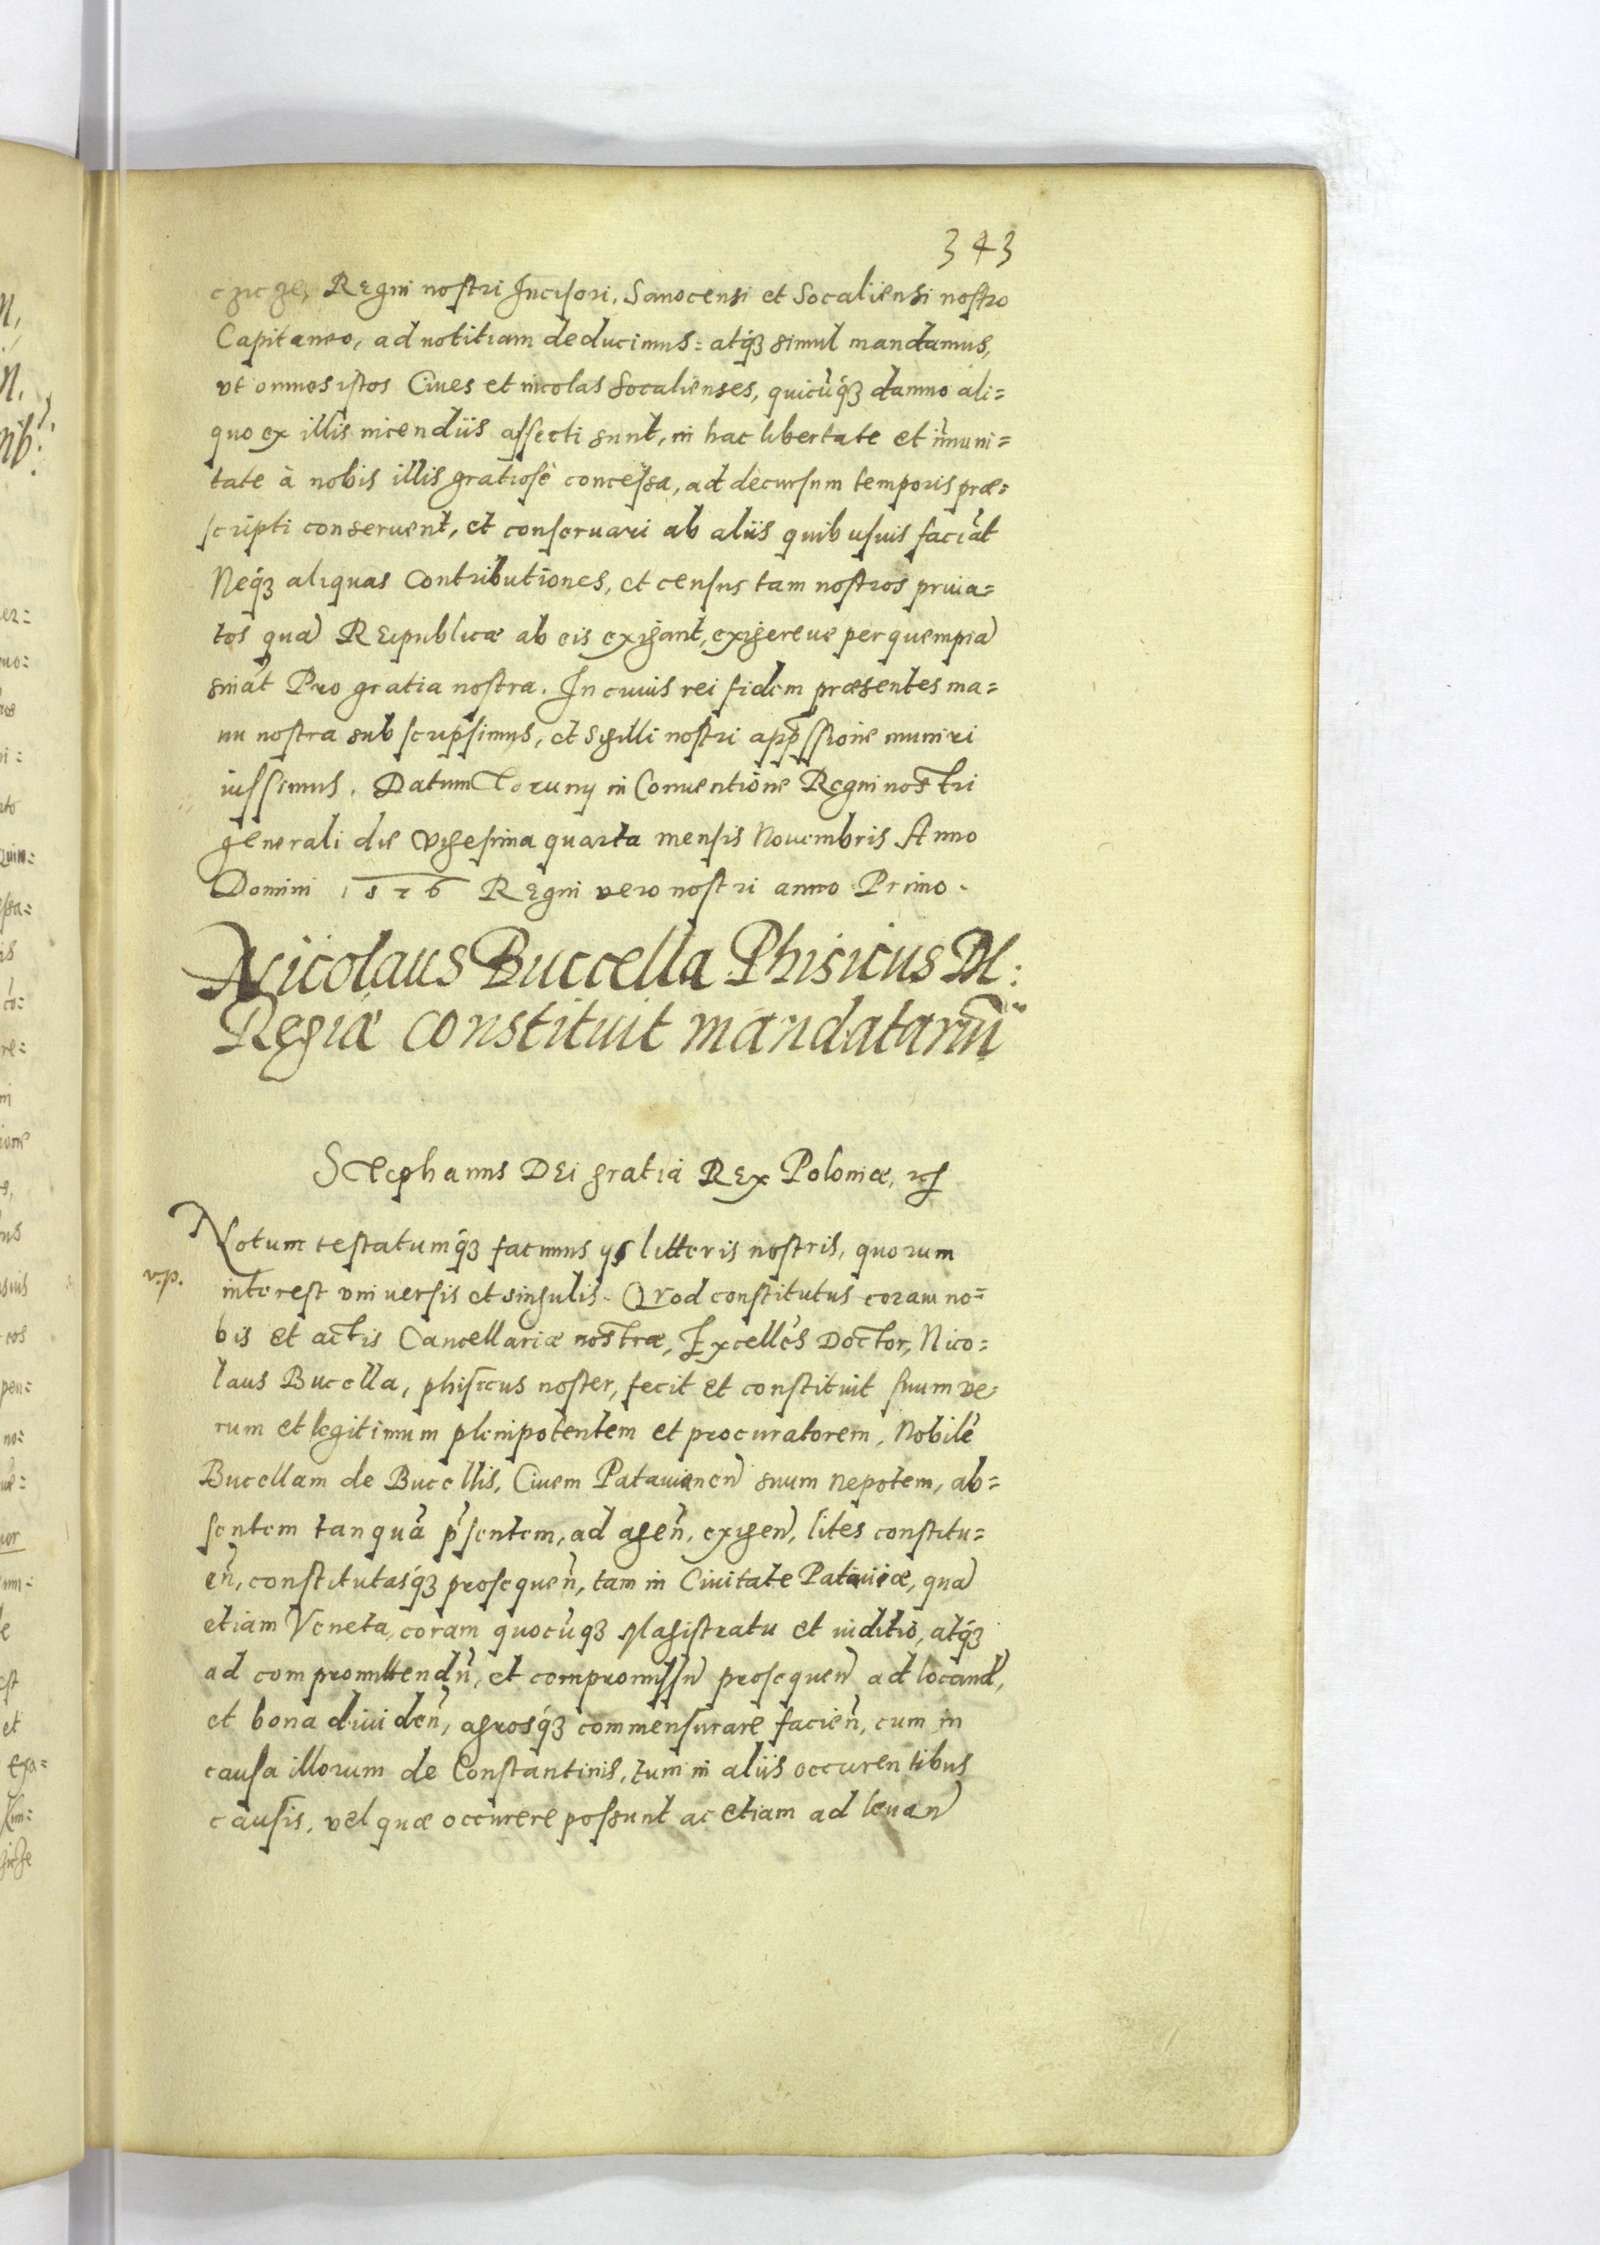 343
Regni nostri Incisori, Sanocensi et Socaliensi nostro
Capitaneo, ad notitiam deducimus: atq́ꝫ simul mandamus,
vt omnes istos Ciues et incolas Socalienses, quicũq́ꝫ damno ali=
quo ex illis incendiis affecti sunt, in hac libertate et im̃uni=
tate à nobis illis gratiosè concessa, ad decursum temporis præ=
scripti conseruent, et conseruari ab aliis quibusuis faciãt
Neq́ꝫ aliquas Contributiones, et census tam nostros priua=
tos quã REipublicæ ab eis exigant, exigereue per quempiã
sinãt Pro gratia nostra. In cuius rei fidem præsentes ma=
nu nostra subscripsimus, et Sigilli nostri app̃ssione muniri
iussimus. Datum Toruny in Conuentione Regni nostri
generali die Vigesima quarta mensis Nouembris Anno
Domini 1576 REgni vero nostri anno Primo.
Nicolaus Buccella Phisicus M:
Regiæ constituit mandatariũ
Stephanus DEi gratia REx Poloniæ, ꝛc
Notum testatumq́ꝫ facimus ijs litteris nostris, quorum
v.p.
interest vniuersis et singulis. Quod constitutus coram no=
bis et actis Cancellariæ nostræ, Excellẽs Doctor, Nico=
laus Bucella, phisicus noster, fecit et constituit suum ve=
rum et legitimum plenipotentem et procuratorem, Nobilẽ
Bucellam de Bucellis, Ciuem Patauineñ suum nepotem, ab=
sentem tanquã p̃sentem, ad ageñ, exigeñ, lites constitu=
eñ, constitutasq́ꝫ prosequeñ, tam in Ciuitate Patauiæ, quã
etiam Veneta, coram quocũqꝫ Magistratu et iuditio, atq́ꝫ
ad compromittendñ, et compromissñ prosequeñ ad locand̃,
et bona diuideñ, agrosq́ꝫ commensurare facieñ, cum in
causa illorum de Constantinis, tum in aliis occurentibus
causis, vel quæ occurere possunt ac etiam ad leuañ